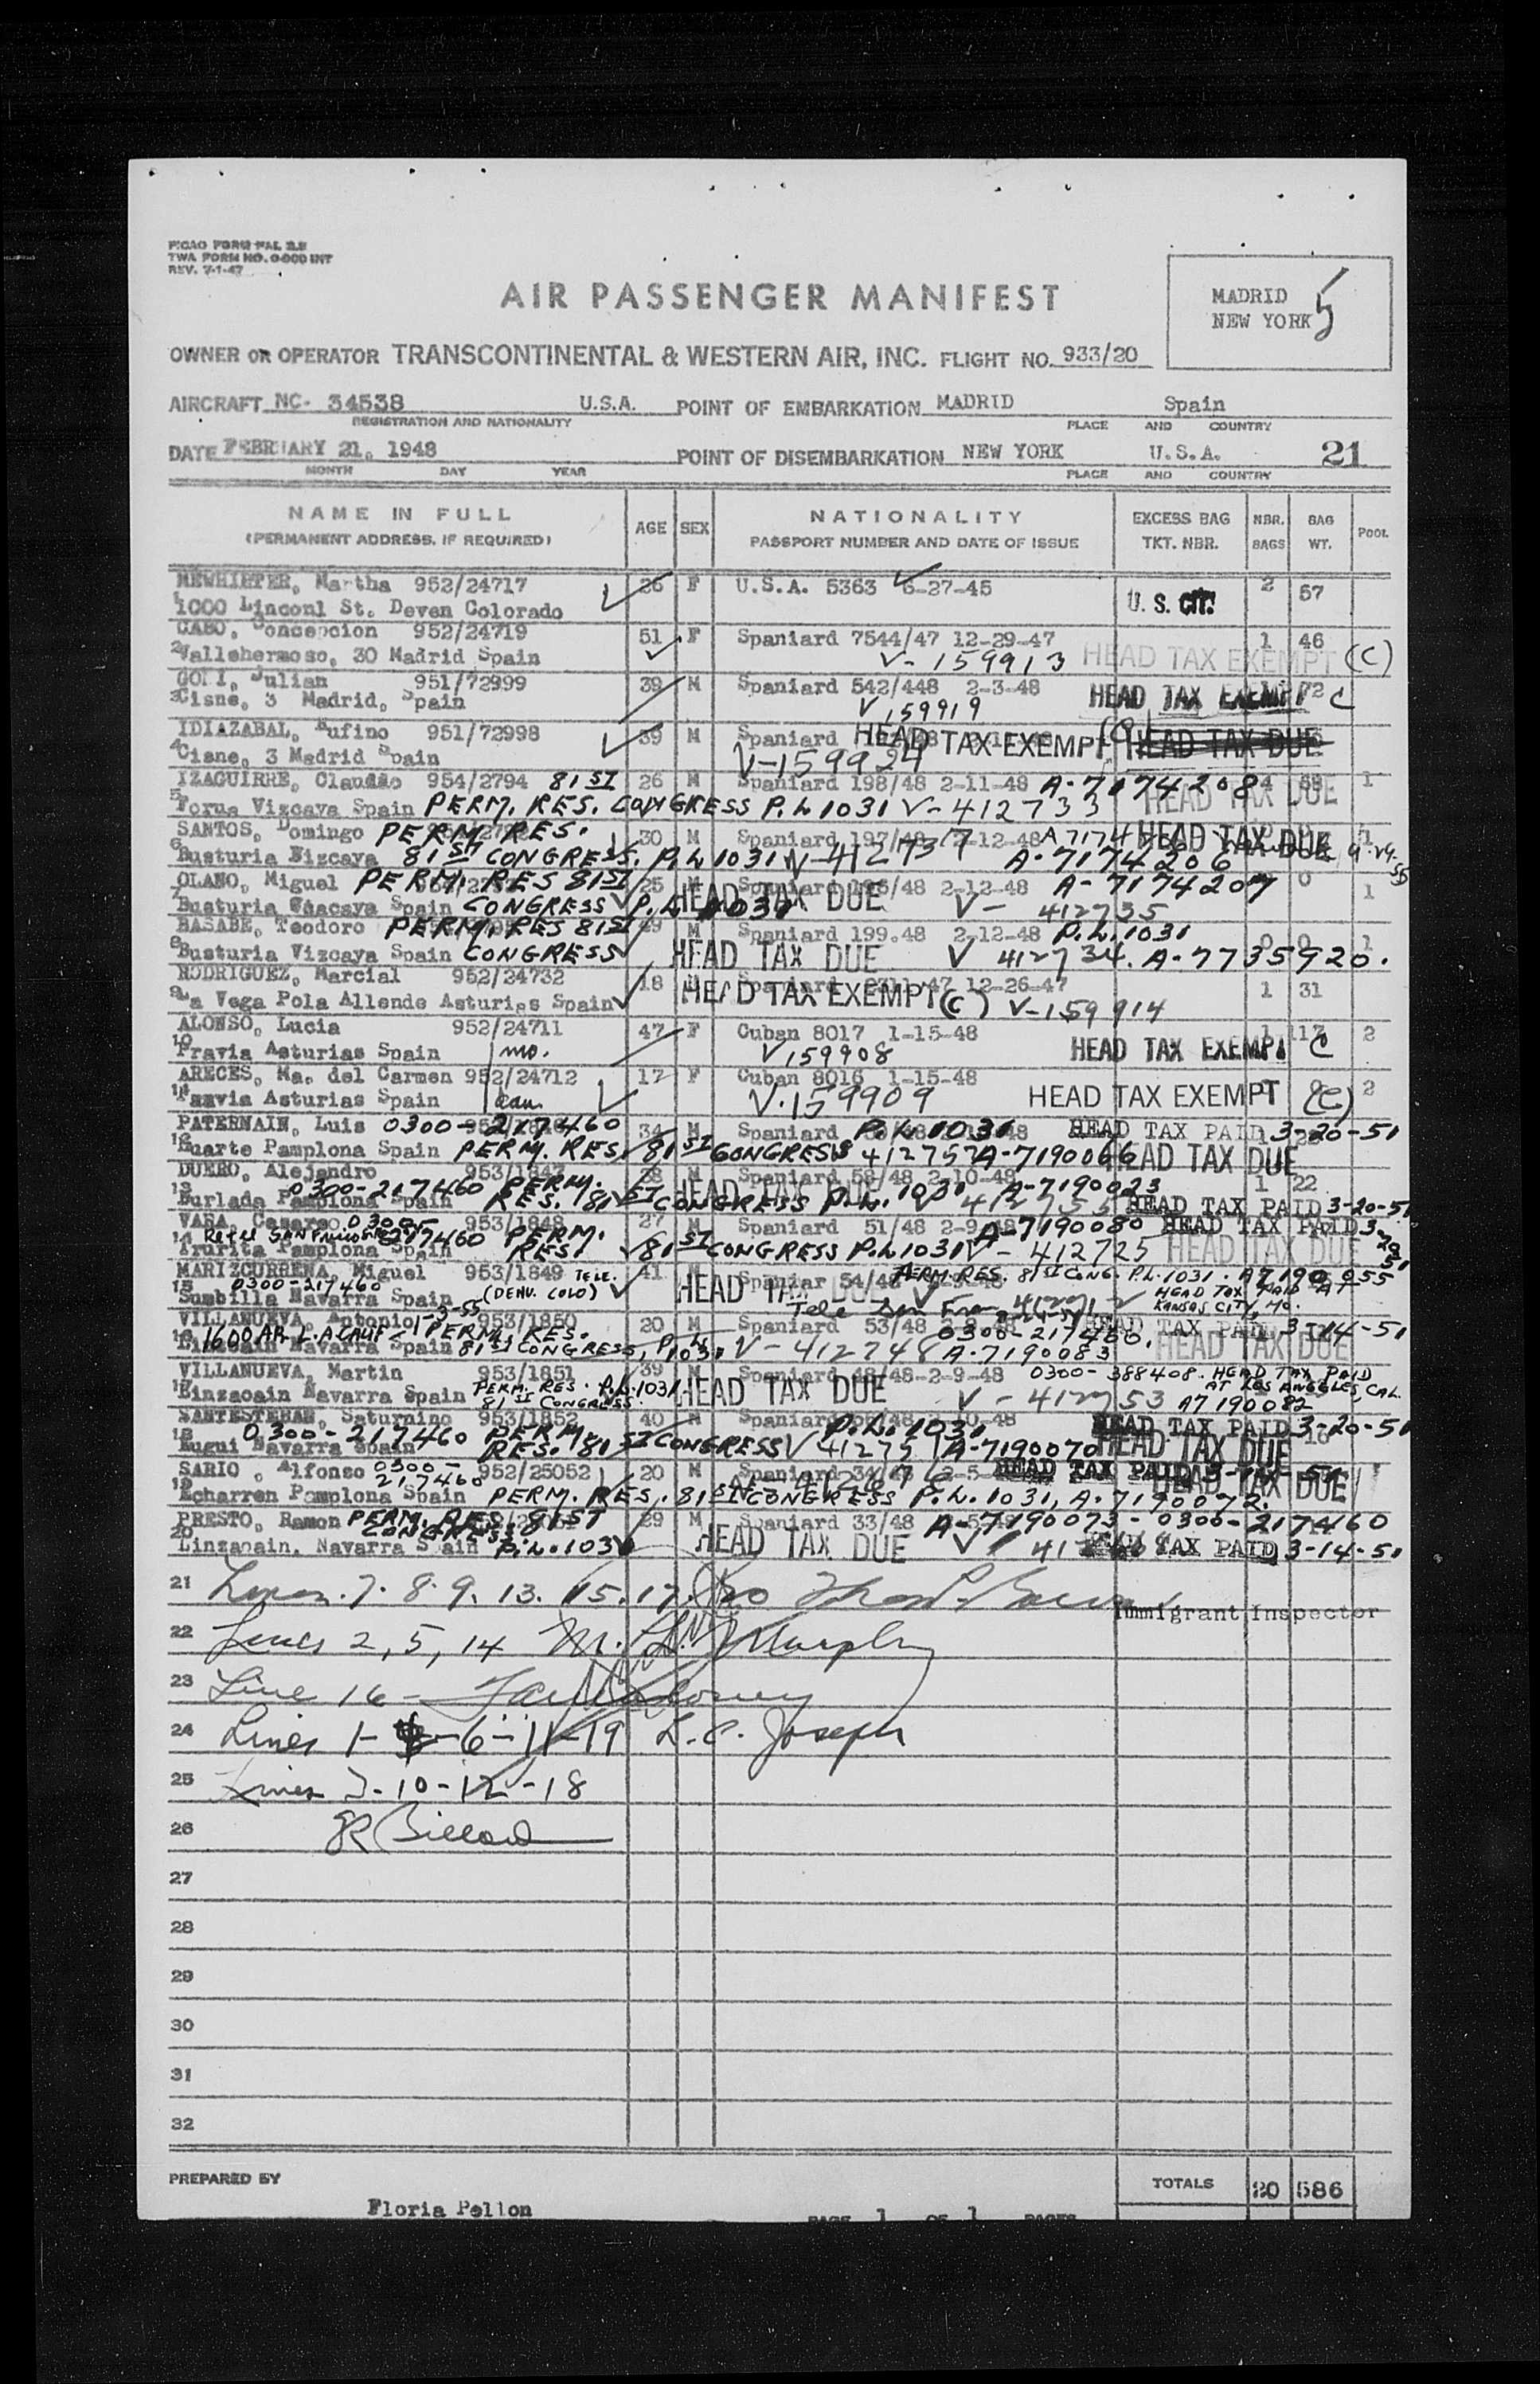 PICAO FORM PAL 2.2
TWA FORM NO. 0-000 INT
REV. 7-1-47
AIR PASSENGER MANIFEST
MADRID
NEW YORK 5
OWNER OR OPERATOR TRANSCONTINENTAL & WESTERN AIR, INC. FLIGHT NO. 933/20
AIRCRAFT NC- 34538 U.S.A. POINT OF EMBARKATION MADRID Spain
REGISTRATION AND NATIONALITY PLACE AND COUNTRY
DATE FEBRUARY 21. 1948 POINT OF DISEMBARKATION NEW YORK U.S.A. 21
MONTH DAY YEAR PLACE AND COUNTRY
NAME IN FULL AGE SEX NATIONALITY EXCESS BAG NBR. BAG POOL
(PERMANENT ADDRESS. IF REQUIRED) PASSPORT NUMBER AND DATE OF ISSUE TKT. NBR. BAGS WT.
Martha 952/24717 26 F U.S.A. 5363 6-27-45 U.S. CIT. 2 57
1 1000 Linconl St. Deven Colorado
CABO, Concepcion 952/24719 51 F Spaniard 7544/47 12-29-47 1 46
2 Vallehermoso, 30 Madrid Spain V-159913 HEAD TAX EXEMPT (C)
GOÑI, Julian 951/72999 39 M Spaniard 542/448 2-3-48 HEAD TAX EXEMPT 72 C
3 Cisne, 3 Madrid, Spain V 159919
IDIAZABAL, Rufino 951/72998 39 M Spaniard HEAD TAX EXEMPT (C) HEAD TAX DUE
4 Cisne, 3 Madrid Spain V-159924
IZAGUIRRE, Claudio 954/2794 81ST 26 M Spaniard 198/48 2-11-48 A-7174208 1
5 Forua Vizcaya Spain PERM. RES. CONGRESS P.L 1031 V-412733 HEAD TAX DUE
SANTOS, Domingo PERM. RES. 30 M Spaniard 197/48 2-12-48 HEAD TAX DUE 1
6 Busturia Vizcaya 81ST CONGRESS. P.L 1031 V-412737 A-7174206
OLANO, Miguel PERM. RES 81ST 25 M Spaniard 196/48 2-12-48 A-7174207 0 1
7 Busturia Spain CONGRESS P.L. 1031 HEAD TAX DUE V- 412735
BASABE, Teodoro PERM. RES 81ST 49 M Spaniard 199.48 2-12-48 P.L.1031 0 0 1
8 Busturia Vizcaya Spain CONGRESS HEAD TAX DUE V 412734. A-7735920.
RODRIGUEZ, Marcial 952/24732 18 12-26-47 1 31
9 La Vega Pola Allende Asturias Spain HEAD TAX EXEMPT (C) V-159914
ALONSO, Lucia 952/24711 47 F Cuban 8017 1-15-48 1 117 2
10 Pravia Asturias Spain mo. V 159908 HEAD TAX EXEMPT C
ARECES, Ma. del Carmen 952/24712 17 F Cuban 8016 1-15-48 2
11 Pravia Asturias Spain dau. V.159909 HEAD TAX EXEMPT (C)
PATERNAIN, Luis 0300-217460 34 M Spaniard P.L.1031 HEAD TAX PAID 3-20-51
12 Huarte Pamplona Spain PERM. RES. 81ST CONGRESS 412752 A-7190066 HEAD TAX DUE
DUERO, Alejandro 953/1847 28 M Spaniard 58/48 2-10-48 A-7190023 1 22
13 Burlada Pamplona Spain 0300-217460 PERM. RES. 81ST CONGRESS P.L. 1031 V 412755 HEAD TAX PAID 3-20-51
VARA, 953/1848 27 M Spaniard 51/48 2-9-48 A-7190080 HEAD TAX PAID 3-20-51
14 Irurita Pamplona Spain 217460 PERM. RES. 81ST CONGRESS P.L.1031 V-412725 HEAD TAX DUE
MARIZCURRENA, Miguel 953/1849 TELE. 41 Spaniar 54/48 PERM. RES. 81ST CONG. P.L.1031. A7190055
15 Sumbilla Navarra Spain 0300-217460 (DENV. COLO) HEAD TAX DUE HEAD TAX PAID AT KANSAS CITY, MO.
VILLANUEVA, Antonio 1-3-55 953/1850 20 M Spaniard 53/48 0300-217460. HEAD TAX PAID 3-14-51
16 Navarra Spain PERM. RES. 81ST CONGRESS, P.L. 1031 V-412748 A-7190083 HEAD TAX DUE
VILLANUEVA, Martin 953/1851 39 M Spaniard 48/48-2-9-48 0300-388408. HEAD TAX PAID AT LOS ANGELES, CAL.
17 Navarra Spain PERM. RES. P.L.1031 81ST CONGRESS. HEAD TAX DUE V-412753 A7190082
SANTESTEBAN, Saturnino 953/1852 40 M Spaniard P.L.1031 HEAD TAX PAID 3-20-51
18 Eugui Navarra Spain 0300-217460 PERM. RES. 81ST CONGRESS V 412751 A-7190070 HEAD TAX DUE
SARIO, Alfonso 0300-217460 952/25052 20 M Spaniard 34/48 HEAD TAX PAID HEAD TAX DUE
19 Echarren Pamplona Spain PERM. RES. 81ST CONGRESS P.L.1031, A-7190072.
PRESTO, Ramon PERM. RES. 81ST 29 M Spaniard 33/48 A-7190073-0300-217460
20 Navarra Spain CONGRESS P.L.1031 HEAD TAX DUE V TAX PAID 3-14-51
21 Lines 7. 8. 9. 13. 15. 17. 20
Immigrant Inspector
22 Lines 2, 5, 14 Murphy
23 Line 16
24 Lines 1- -6-11-19 L.C. Joseph
25 Lines 3-10-12-18
26 Billard
27
28
29
30
31
32
PREPARED BY TOTALS 20 586
Floria Pellon PAGE 1 OF 1 PAGES